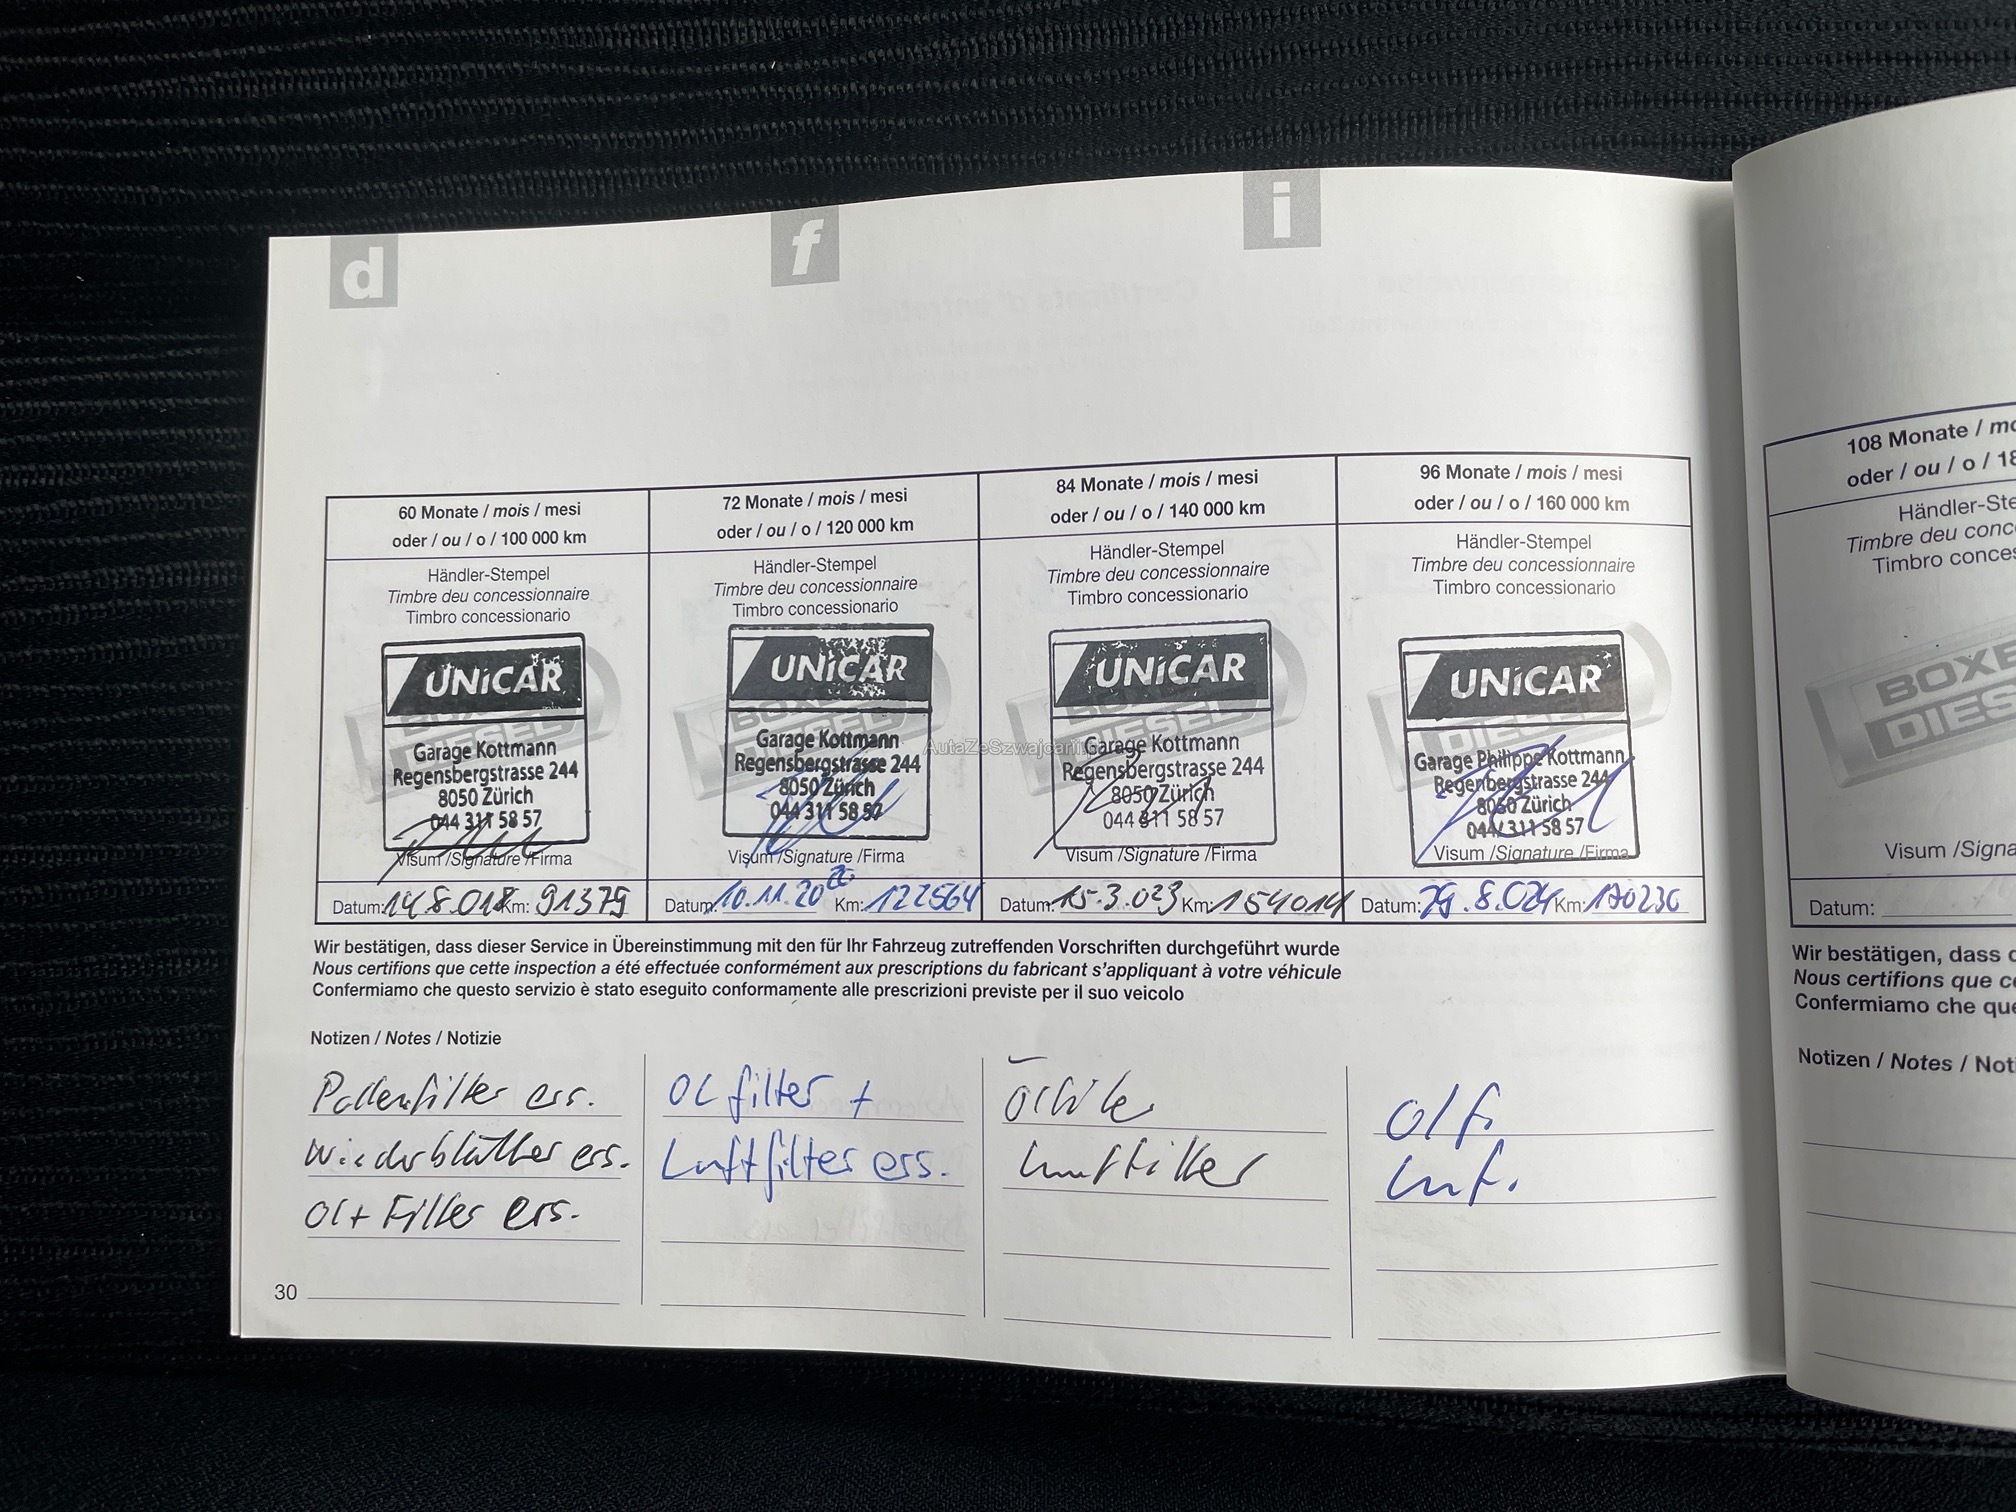 d
f
i
60 Monate / mois / mesi
oder / ou / o / 100 000 km
Händler-Stempel
Timbre deu concessionnaire
Timbro concessionario
UNiCAR
Garage Kottmann
Regensbergstrasse 244
8050 Zürich
044 311 58 57
Visum /Signature /Firma
Datum: 14.8.018 Km: 91379
72 Monate / mois / mesi
oder / ou / o / 120 000 km
Händler-Stempel
Timbre deu concessionnaire
Timbro concessionario
UNiCAR
Garage Kottmann
Regensbergstrasse 244
8050 Zürich
044 311 58 57
Visum /Signature /Firma
Datum: 10.11.2020 Km: 122564
84 Monate / mois / mesi
oder / ou / o / 140 000 km
Händler-Stempel
Timbre deu concessionnaire
Timbro concessionario
UNiCAR
Garage Kottmann
Regensbergstrasse 244
8050 Zürich
044 311 58 57
Visum /Signature /Firma
Datum: 15.3.023 Km: 154014
96 Monate / mois / mesi
oder / ou / o / 160 000 km
Händler-Stempel
Timbre deu concessionnaire
Timbro concessionario
UNiCAR
Garage Philippe Kottmann
Regenbergstrasse 244
8050 Zürich
044 311 58 57
Visum /Signature /Firma
Datum: 29.8.024 Km: 170230
Wir bestätigen, dass dieser Service in Übereinstimmung mit den für Ihr Fahrzeug zutreffenden Vorschriften durchgeführt wurde
Nous certifions que cette inspection a été effectuée conformément aux prescriptions du fabricant s'appliquant à votre véhicule
Confermiamo che questo servizio è stato eseguito conformamente alle prescrizioni previste per il suo veicolo
Notizen / Notes / Notizie
Pollenfilter ers.
Wiederblätter ers.
Öl + Filter ers.
Öl filter +
Luftfilter ers.
Ölfilter
Luftfilter
Öl f.
Luf.
30
108 Monate / mo
oder / ou / o / 18
Händler-Ste
Timbre deu conc
Timbro conces
BOXE
DIES
Visum /Signa
Datum:
Wir bestätigen, dass d
Nous certifions que ce
Confermiamo che que
Notizen / Notes / Noti